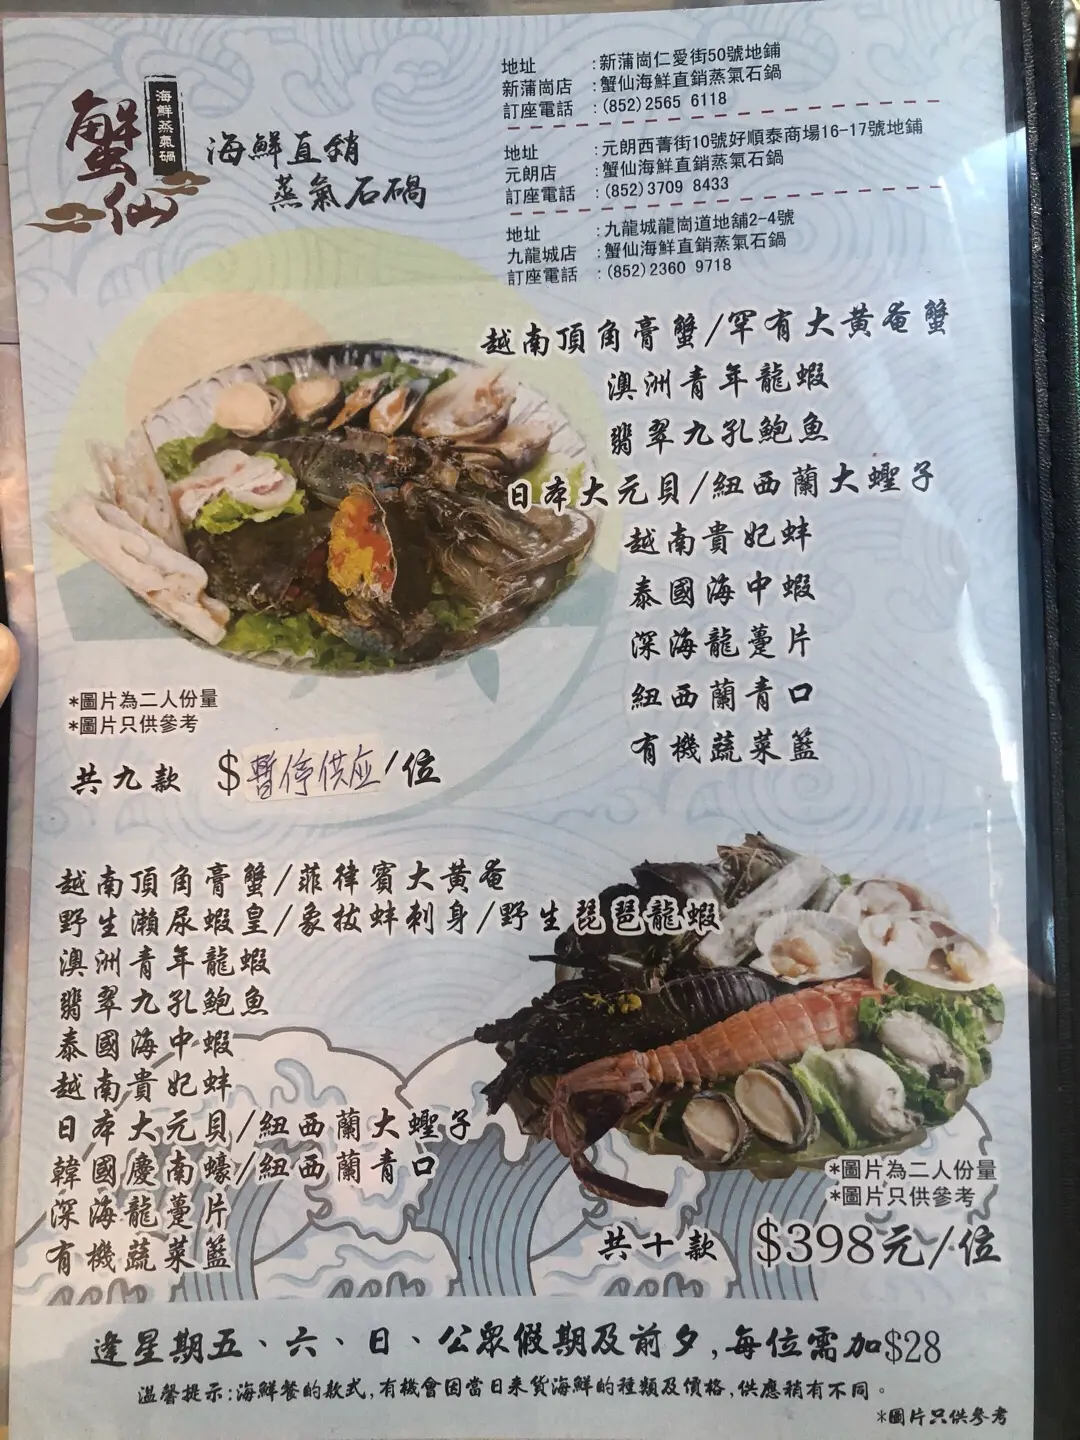 蟹仙
海鮮蒸氣鍋
海鮮直銷
蒸氣石鍋
地址 :新蒲崗仁愛街50號地鋪
新蒲崗店 :蟹仙海鮮直銷蒸氣石鍋
訂座電話 :(852)2565 6118
地址 :元朗西菁街10號好順泰商場16-17號地鋪
元朗店 :蟹仙海鮮直銷蒸氣石鍋
訂座電話 :(852)3709 8433
地址 :九龍城龍崗道地舖2-4號
九龍城店 :蟹仙海鮮直銷蒸氣石鍋
訂座電話 :(852)2360 9718
越南頂角膏蟹/罕有大黃奄蟹
澳洲青年龍蝦
翡翠九孔鮑魚
日本大元貝/紐西蘭大蟶子
越南貴妃蚌
泰國海中蝦
深海龍躉片
紐西蘭青口
有機蔬菜籃
*圖片為二人份量
*圖片只供參考
共九款 $暫停供应/位
越南頂角膏蟹/菲律賓大黃奄
野生瀨尿蝦皇/象拔蚌刺身/野生琵琶龍蝦
澳洲青年龍蝦
翡翠九孔鮑魚
泰國海中蝦
越南貴妃蚌
日本大元貝/紐西蘭大蟶子
韓國慶南蠔/紐西蘭青口
深海龍躉片
有機蔬菜籃
*圖片為二人份量
*圖片只供參考
共十款 $398元/位
逢星期五、六、日、公眾假期及前夕,每位需加$28
溫馨提示:海鮮餐的款式,有機會因當日來貨海鮮的種類及價格,供應稍有不同。
*圖片只供參考